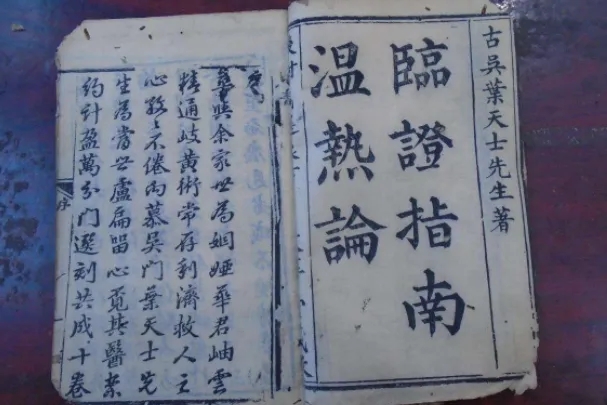 古吳葉天士先生著
臨證指南
溫熱論
序
與余家世為姻婭華君岫雲
精通岐黃術常存利濟救人之
心孜〻不倦向慕吳門葉天士先
生為當世盧扁畱心覓其醫案
約計盈萬分門選刻共成十卷
序